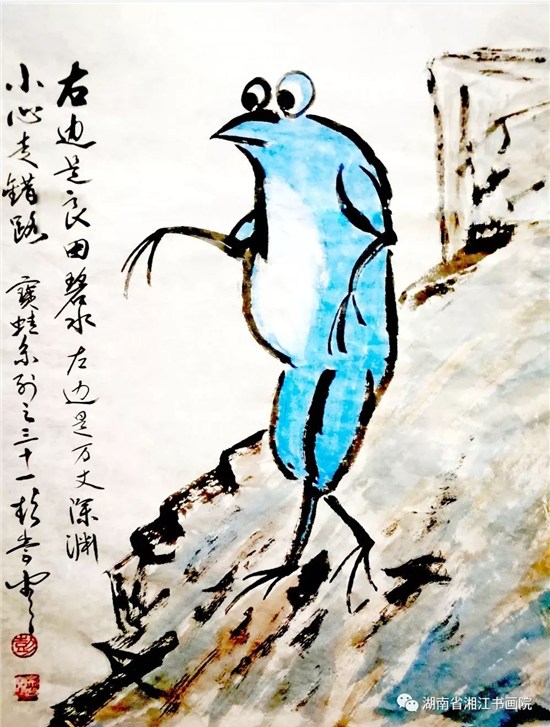 右边是良田碧水 左边是万丈深渊
小心走错路 寶蛙系列之三十一 彭
彭
湖南省湘江书画院